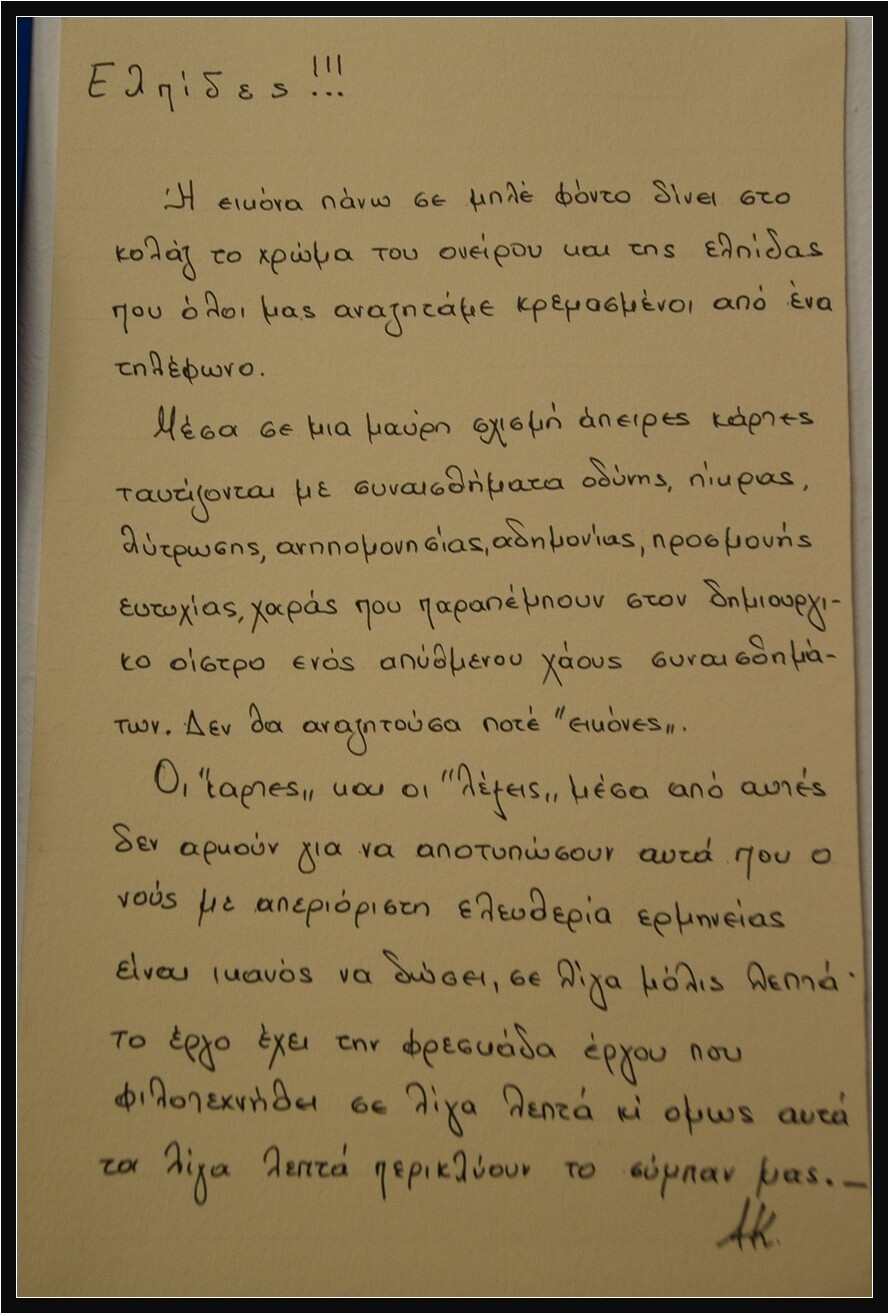 Ελπίδες!!!
Η εικόνα πάνω σε μπλέ φόντο δίνει στο
κολάζ το χρώμα του ονείρου και της ελπίδας
που όλοι μας αναζητάμε κρεμασμένοι από ένα
τηλέφωνο.
Μέσα σε μια μαύρη σχισμή άπειρες κάρτες
ταυτίζονται με συναισθήματα οδύνης, πίκρας,
λύτρωσης, ανηπομονησίας, αδημονίας, προσμονής
ευτυχίας, χαράς που παραπέμπουν στον δημιουργι-
κο οίστρο ενός απύθμενου χάους συναισθημά-
των. Δεν θα αναζητούσα ποτέ "εικόνες".
Οι "καρτες" και οι "λέξεις" μέσα από αυτές
δεν αρκούν για να αποτυπώσουν αυτά που ο
νούς με απεριόριστη ελευθερία ερμηνείας
είναι ικανός να δώσει, σε λίγα μόλις λεπτά·
το έργο έχει την φρεσκάδα έργου που
φιλοτεχνήθει σε λίγα λεπτά κι ομως αυτά
τα λίγα λεπτά περικλύουν το σύμπαν μας.—
ΑΚ.